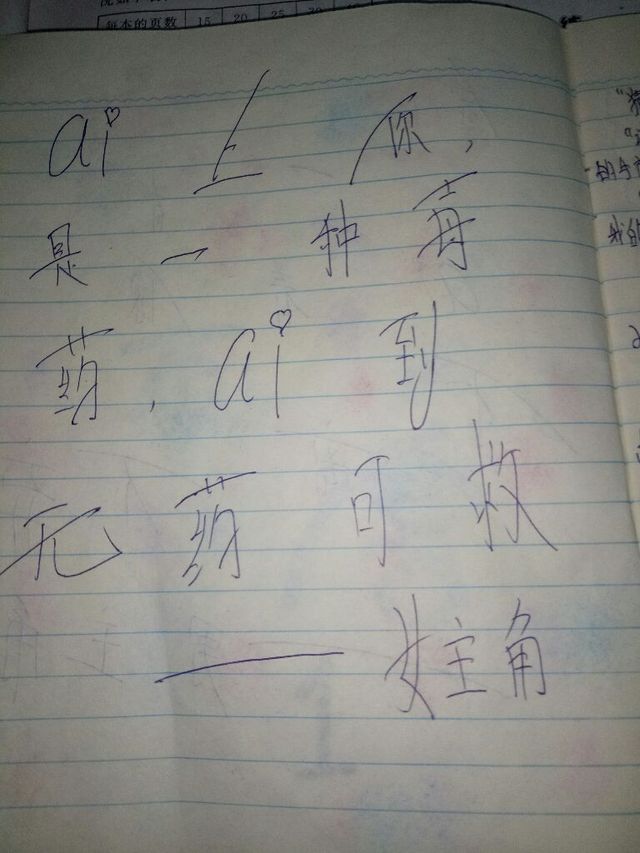 每本的页数 15 20 25
ai上你,
是一种毒
药,ai到
无药可救
——女主角